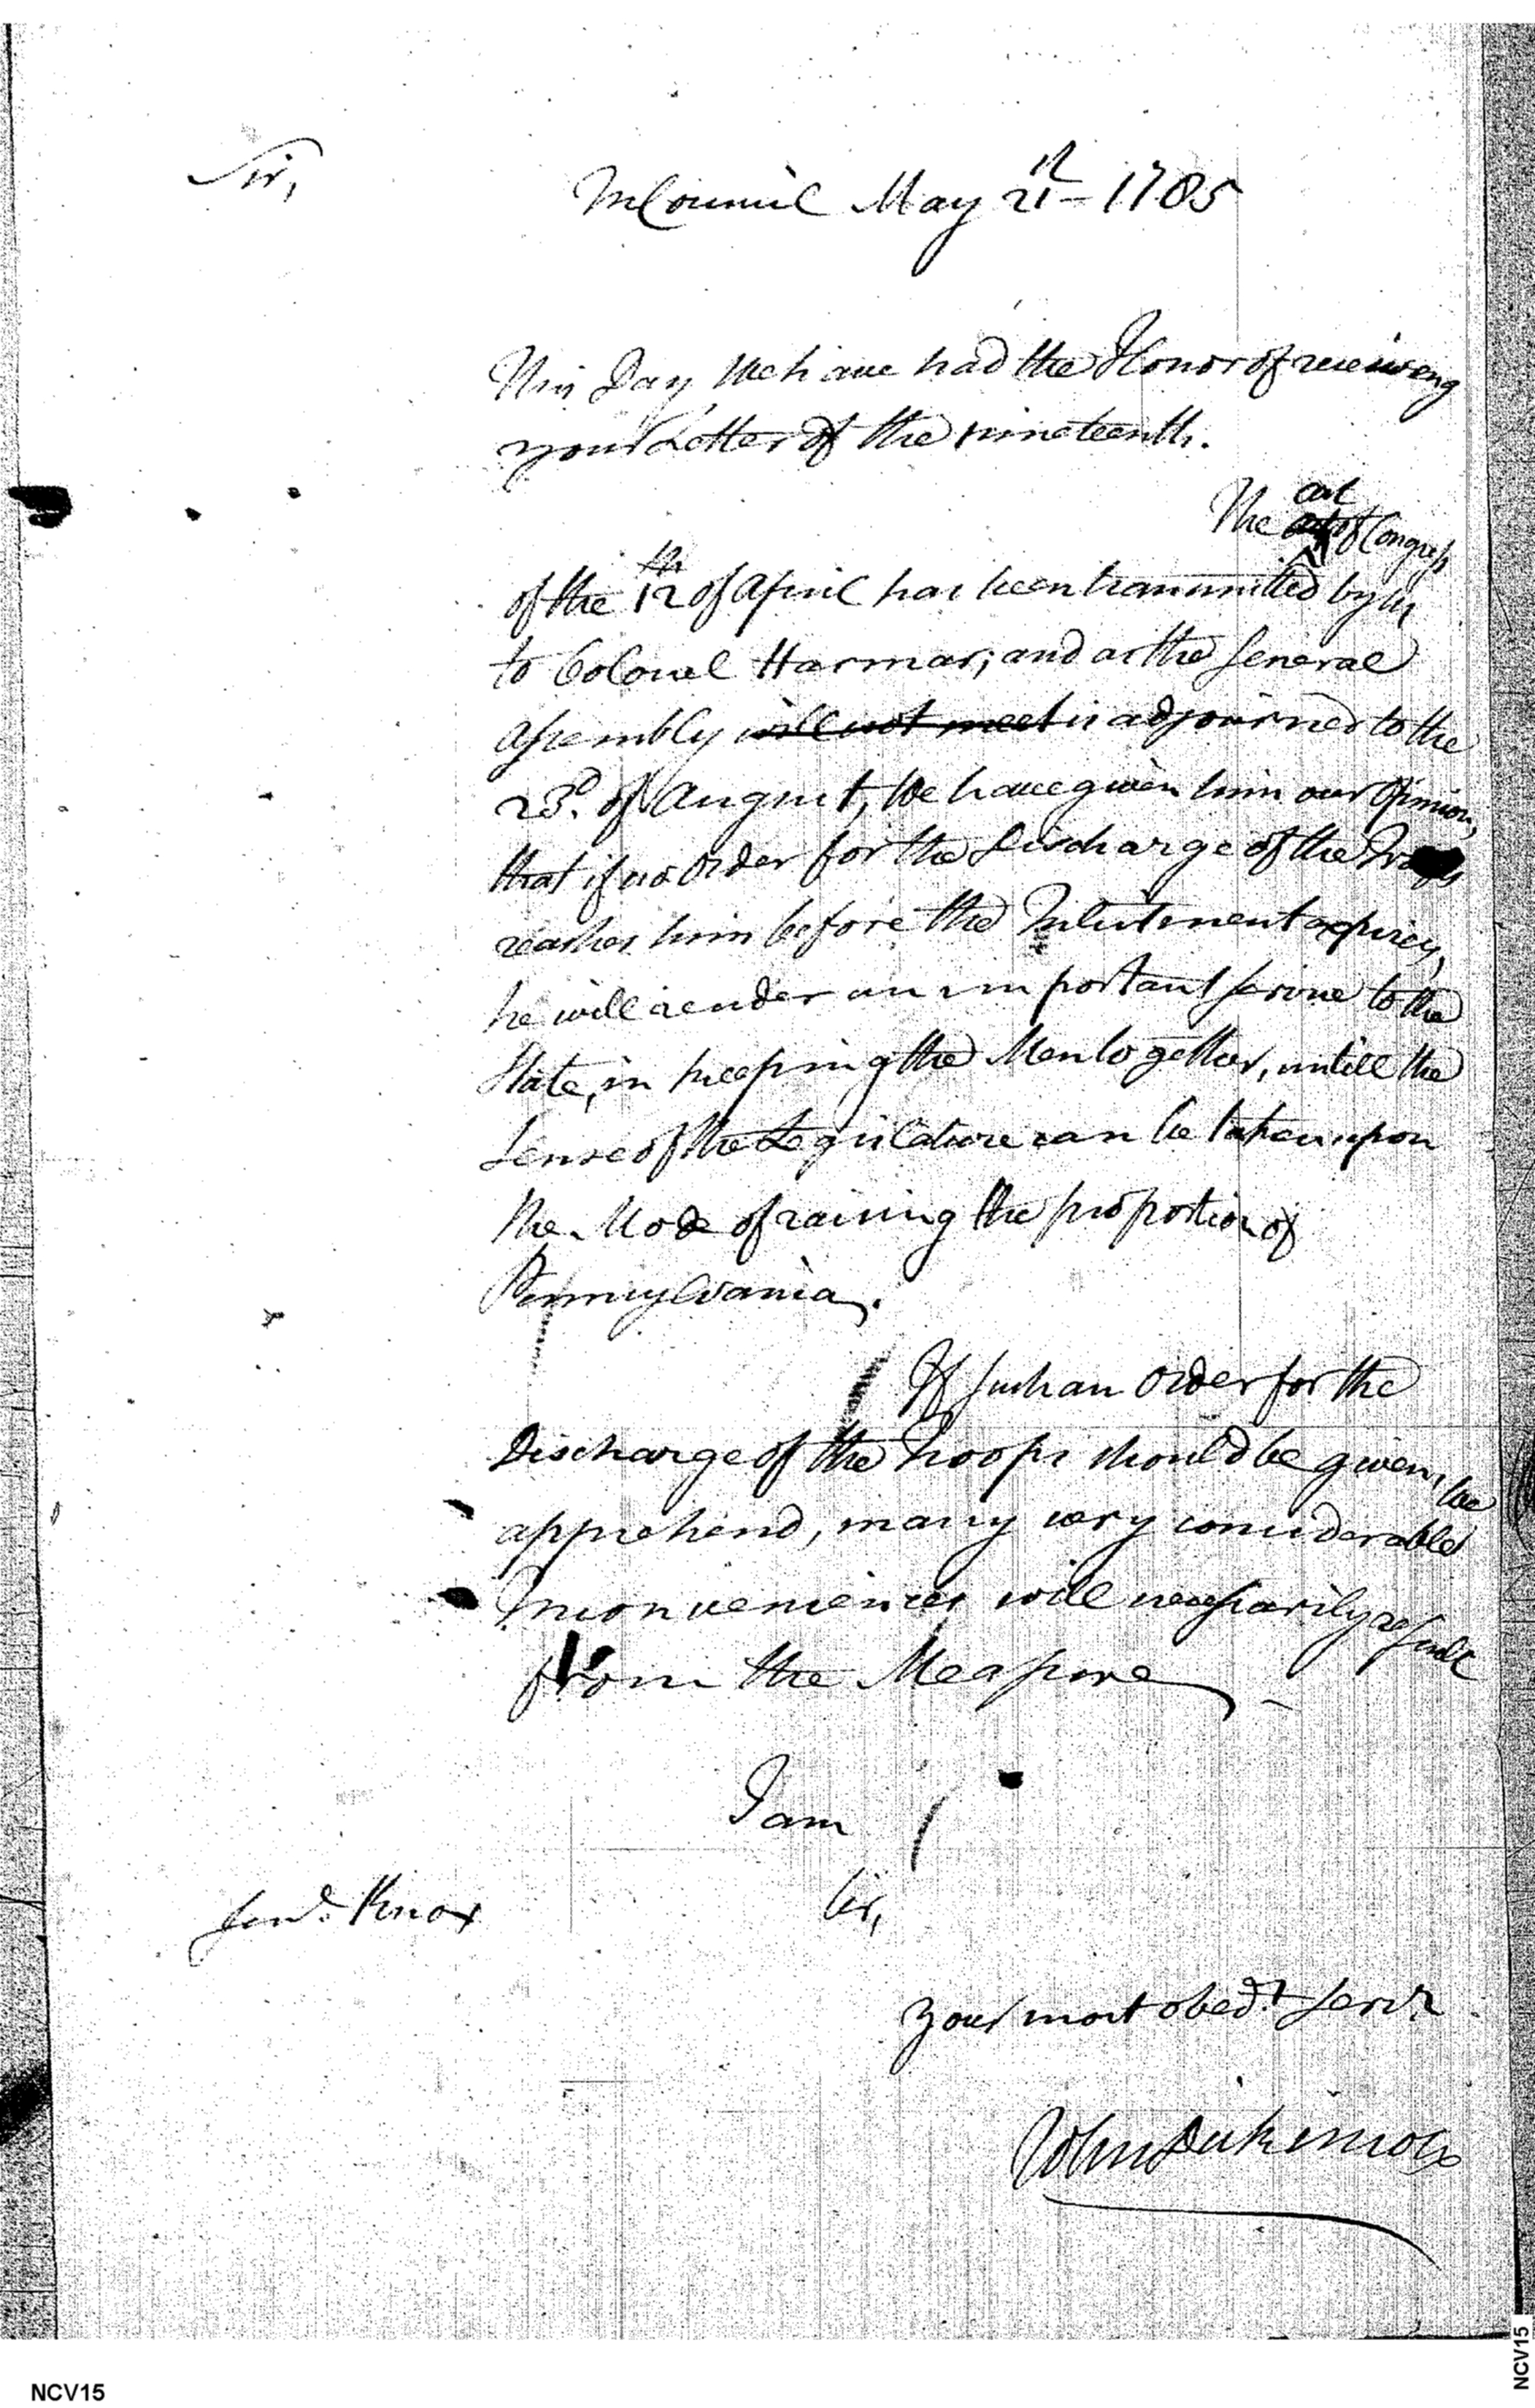 Sir,
In Council May 21st 1785
This Day We have had the Honor of receiving
your Letter of the nineteenth.
act
The act of Congress
of the 12th of April has been transmitted by us,
to Colonel Harmar; and as the General
Assembly will not meet is adjourned to the
23d. of August, We have given him our Opinion,
that if no Order for the Discharge of the Troops
reaches him before the Inlistment expires,
he will render an important service to the
State, in keeping the Men together, untill the
Sense of the Legislature can be taken upon
the Mode of raising the proportion of
Pennsylvania.
If such an Order for the
Discharge of the Troops should be given, we
apprehend, many very considerable
Inconveniences will necessarily result
from the Measure
I am
Sir,
Genl. Knox
your most obedt. servt
John Dickinson
NCV15
NCV15